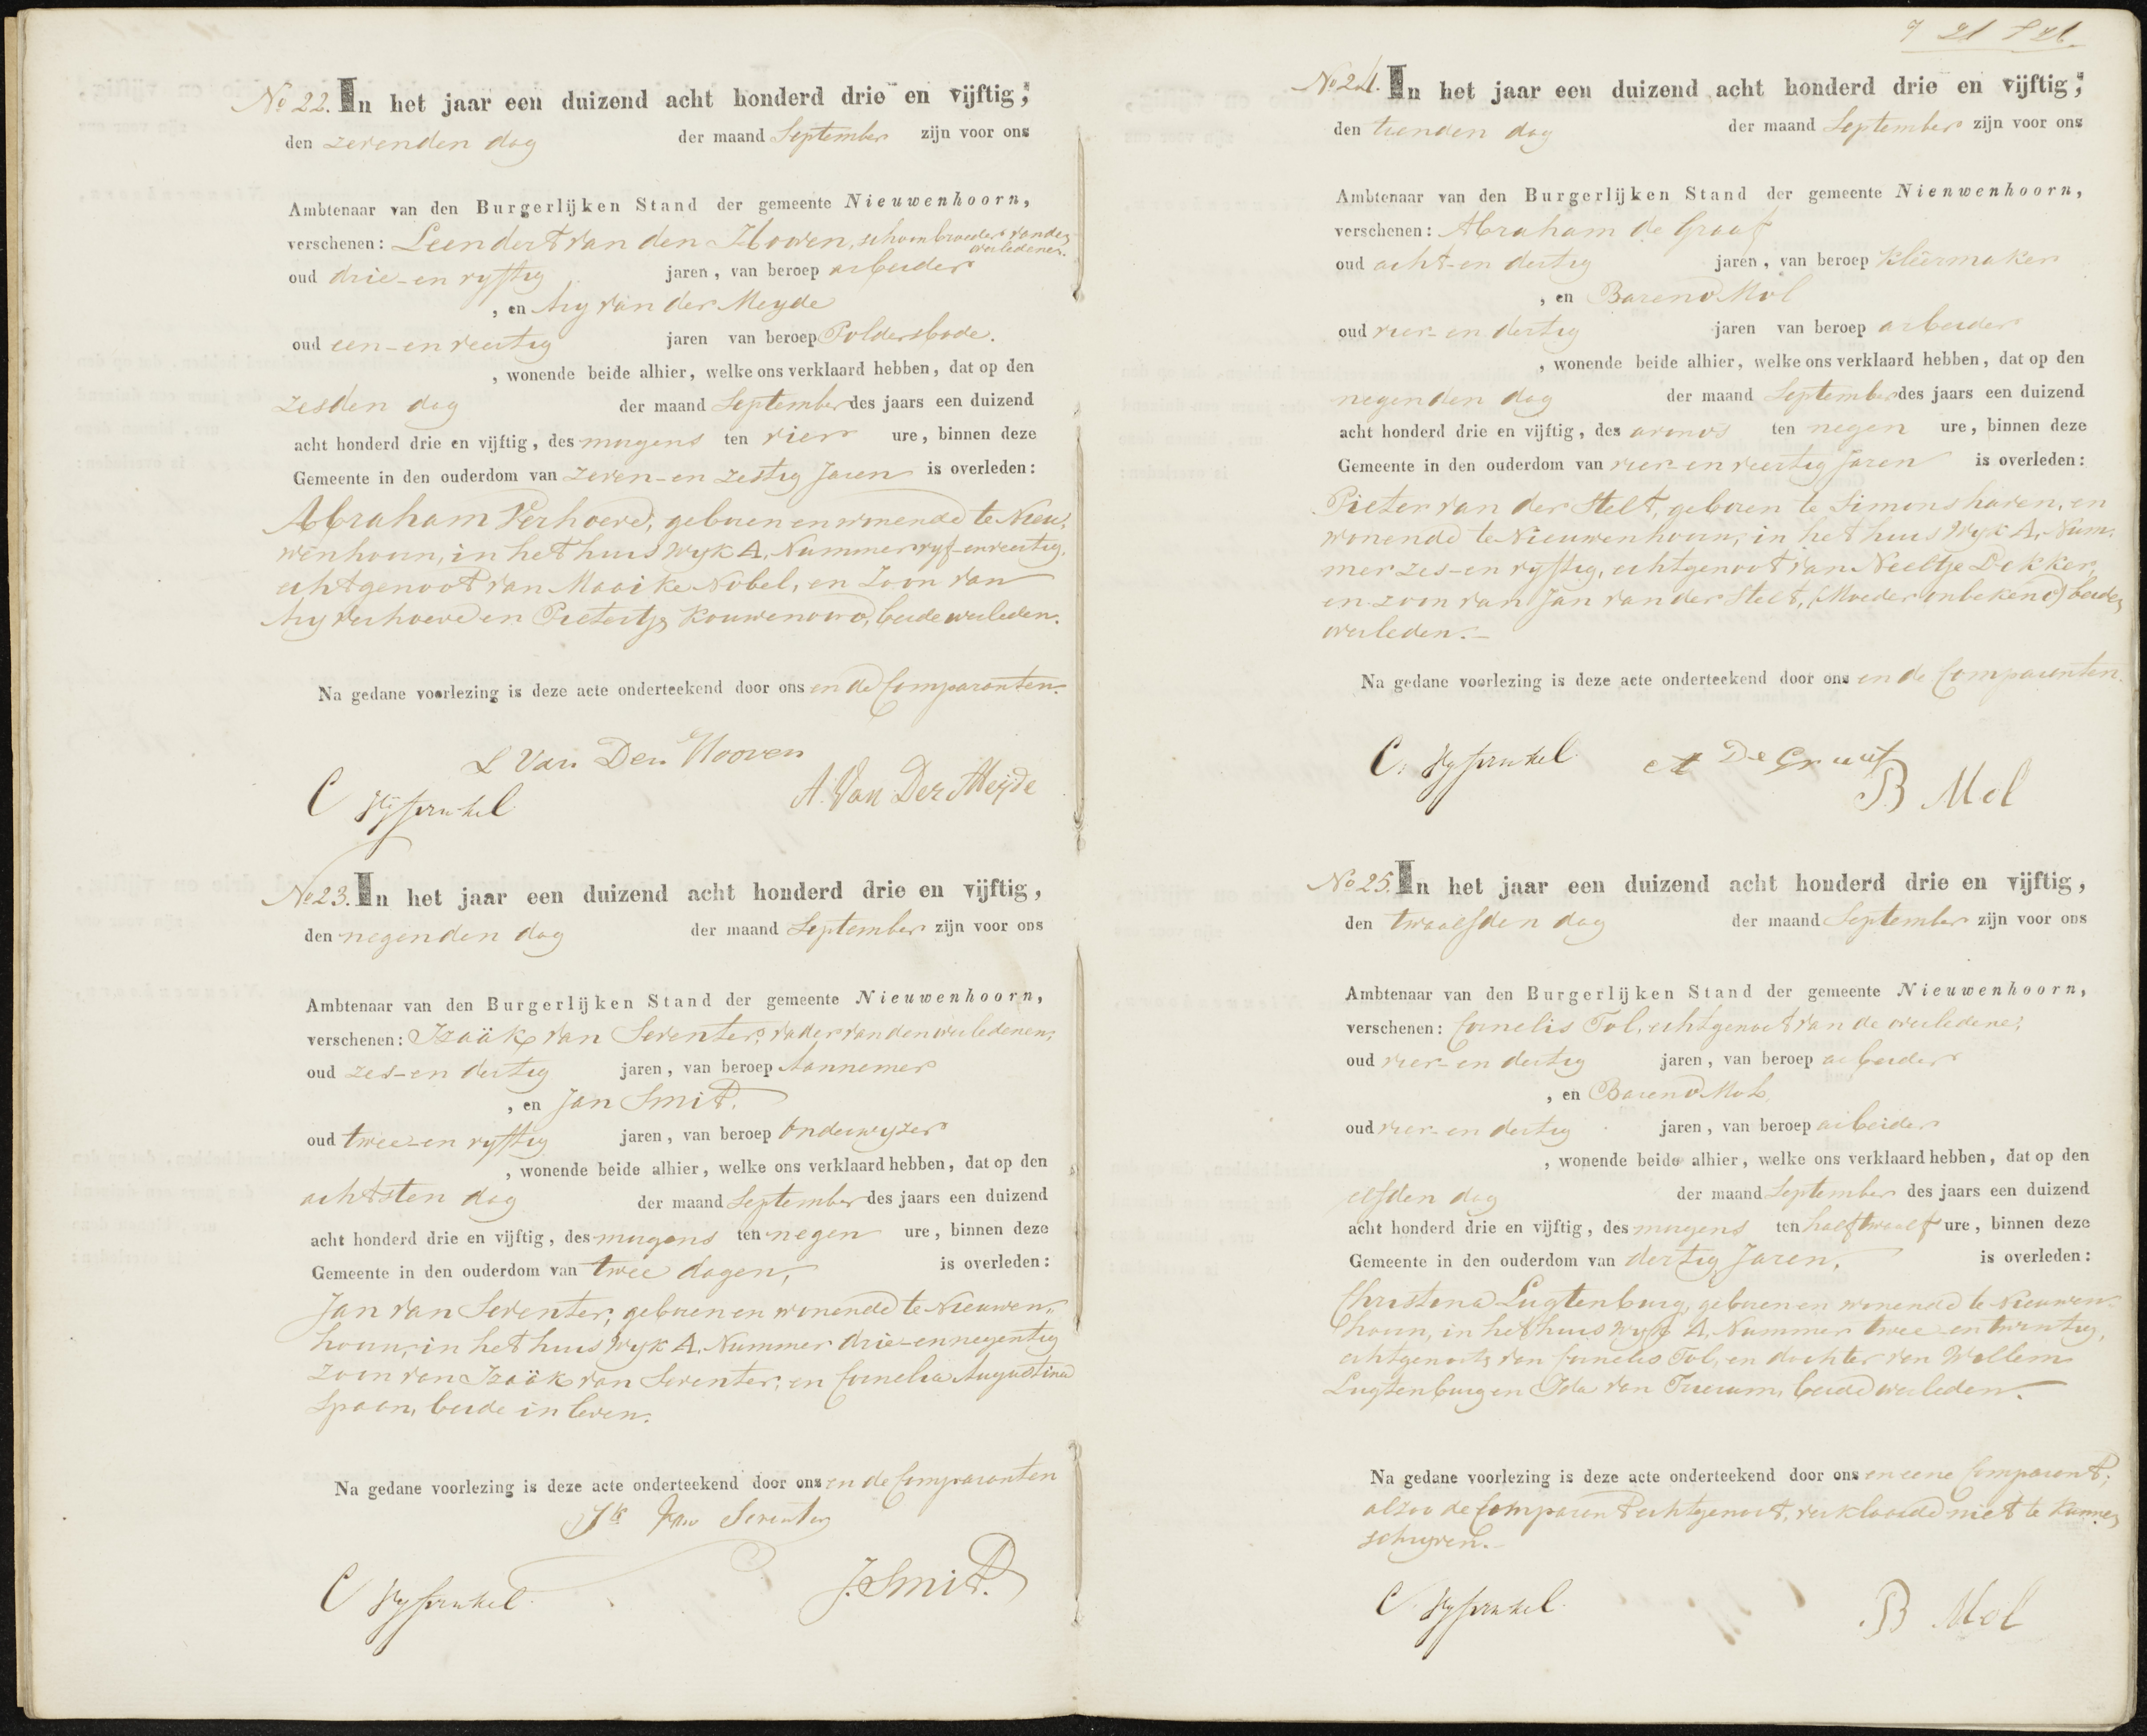 No 22. In het jaar een duizend acht honderd drie en vijftig,
den zevenden dag der maand September zijn voor ons
Ambtenaar van den Burgerlijken Stand der gemeente Nieuwenhoorn,
verschenen: Leendert van den Hooven, schoonbroeder van den
overledenen.
oud drie-en vyftig jaren, van beroep arbeider
, en Ary van der Meyde
oud een-en veertig jaren van beroep Poldersbode.
, wonende beide alhier, welke ons verklaard hebben, dat op den
zesden dag der maand September des jaars een duizend
acht honderd drie en vijftig, des morgens ten vier ure, binnen deze
Gemeente in den ouderdom van zeven-en zestig Jaren is overleden:
Abraham Verhoeve, geboren en wonende te Nieu-
wenhoorn, in het huis Wyk A, Nummer vyf-en veertig,
echtgenoot van Maaike Nobel, en Zoon van
Ary Verhoeve en Pietertje Kouwenoord, beide overleden.
Na gedane voorlezing is deze acte onderteekend door ons en de Comparanten.
L Van Den Hooven
C
A. Van Der Meijde
No 23. In het jaar een duizend acht honderd drie en vijftig,
den negenden dag der maand September zijn voor ons
Ambtenaar van den Burgerlijken Stand der gemeente Nieuwenhoorn,
verschenen: Izaäk van Seventer, vader van den overledenen,
oud zes-en dertig jaren, van beroep Aannemer
, en Jan Smit.
oud twee-en vyftig jaren, van beroep Onderwyzer
, wonende beide alhier, welke ons verklaard hebben, dat op den
achtsten dag der maand September des jaars een duizend
acht honderd drie en vijftig, des morgens ten negen ure, binnen deze
Gemeente in den ouderdom van twee dagen, is overleden:
Jan van Seventer, geboren en wonende te Nieuwen-
hoorn, in het huis Wyk A, Nummer drie-en negentig
Zoon van Izaäk van Seventer, en Cornelia Augustina
Spaan, beide in leven.
Na gedane voorlezing is deze acte onderteekend door ons en de Comparanten
van Seventer
C
J. Smit.
No 24. In het jaar een duizend acht honderd drie en vijftig,
den tienden dag der maand September zijn voor ons
Ambtenaar van den Burgerlijken Stand der gemeente Nieuwenhoorn,
verschenen: Abraham de Graaf
oud acht-en dertig jaren, van beroep Kleermaker
, en Barend Mol
oud vier-en dertig jaren van beroep arbeider
, wonende beide alhier, welke ons verklaard hebben, dat op den
negenden dag der maand September des jaars een duizend
acht honderd drie en vijftig, des avonds ten negen ure, binnen deze
Gemeente in den ouderdom van vier-en veertig Jaren is overleden:
Pieter van der Stelt, geboren te Simonshaven, en
wonende te Nieuwenhoorn, in het huis Wyk A, Num-
mer zes-en vyftig, echtgenoot van Neeltje Dekker,
en zoon van Jan van der Stelt, (Moeder onbekend) beide
overleden.
Na gedane voorlezing is deze acte onderteekend door ons en de Comparanten.
C.
A De Graaf
B Mol
No 25. In het jaar een duizend acht honderd drie en vijftig,
den twaalfden dag der maand September zijn voor ons
Ambtenaar van den Burgerlijken Stand der gemeente Nieuwenhoorn,
verschenen: Cornelis Tol, echtgenoot van de overledene,
oud vier-en dertig jaren, van beroep arbeider
, en Barend Mol
oud vier-en dertig jaren, van beroep arbeider
, wonende beide alhier, welke ons verklaard hebben, dat op den
elfden dag der maand September des jaars een duizend
acht honderd drie en vijftig, des morgens ten half twaalf ure, binnen deze
Gemeente in den ouderdom van dertig Jaren, is overleden:
Christina Lugtenburg, geboren en wonende te Nieuwen-
hoorn, in het huis Wyk A, Nummer twee-en twintig,
echtgenoote van Cornelis Tol, en dochter van Willem
Lugtenburg en Ida van Trierum, beide overleden.
Na gedane voorlezing is deze acte onderteekend door ons en eene Comparant;
alzoo de Comparant echtgenoot, verklaarde niet te kunnen
schryven.
C
B Mol